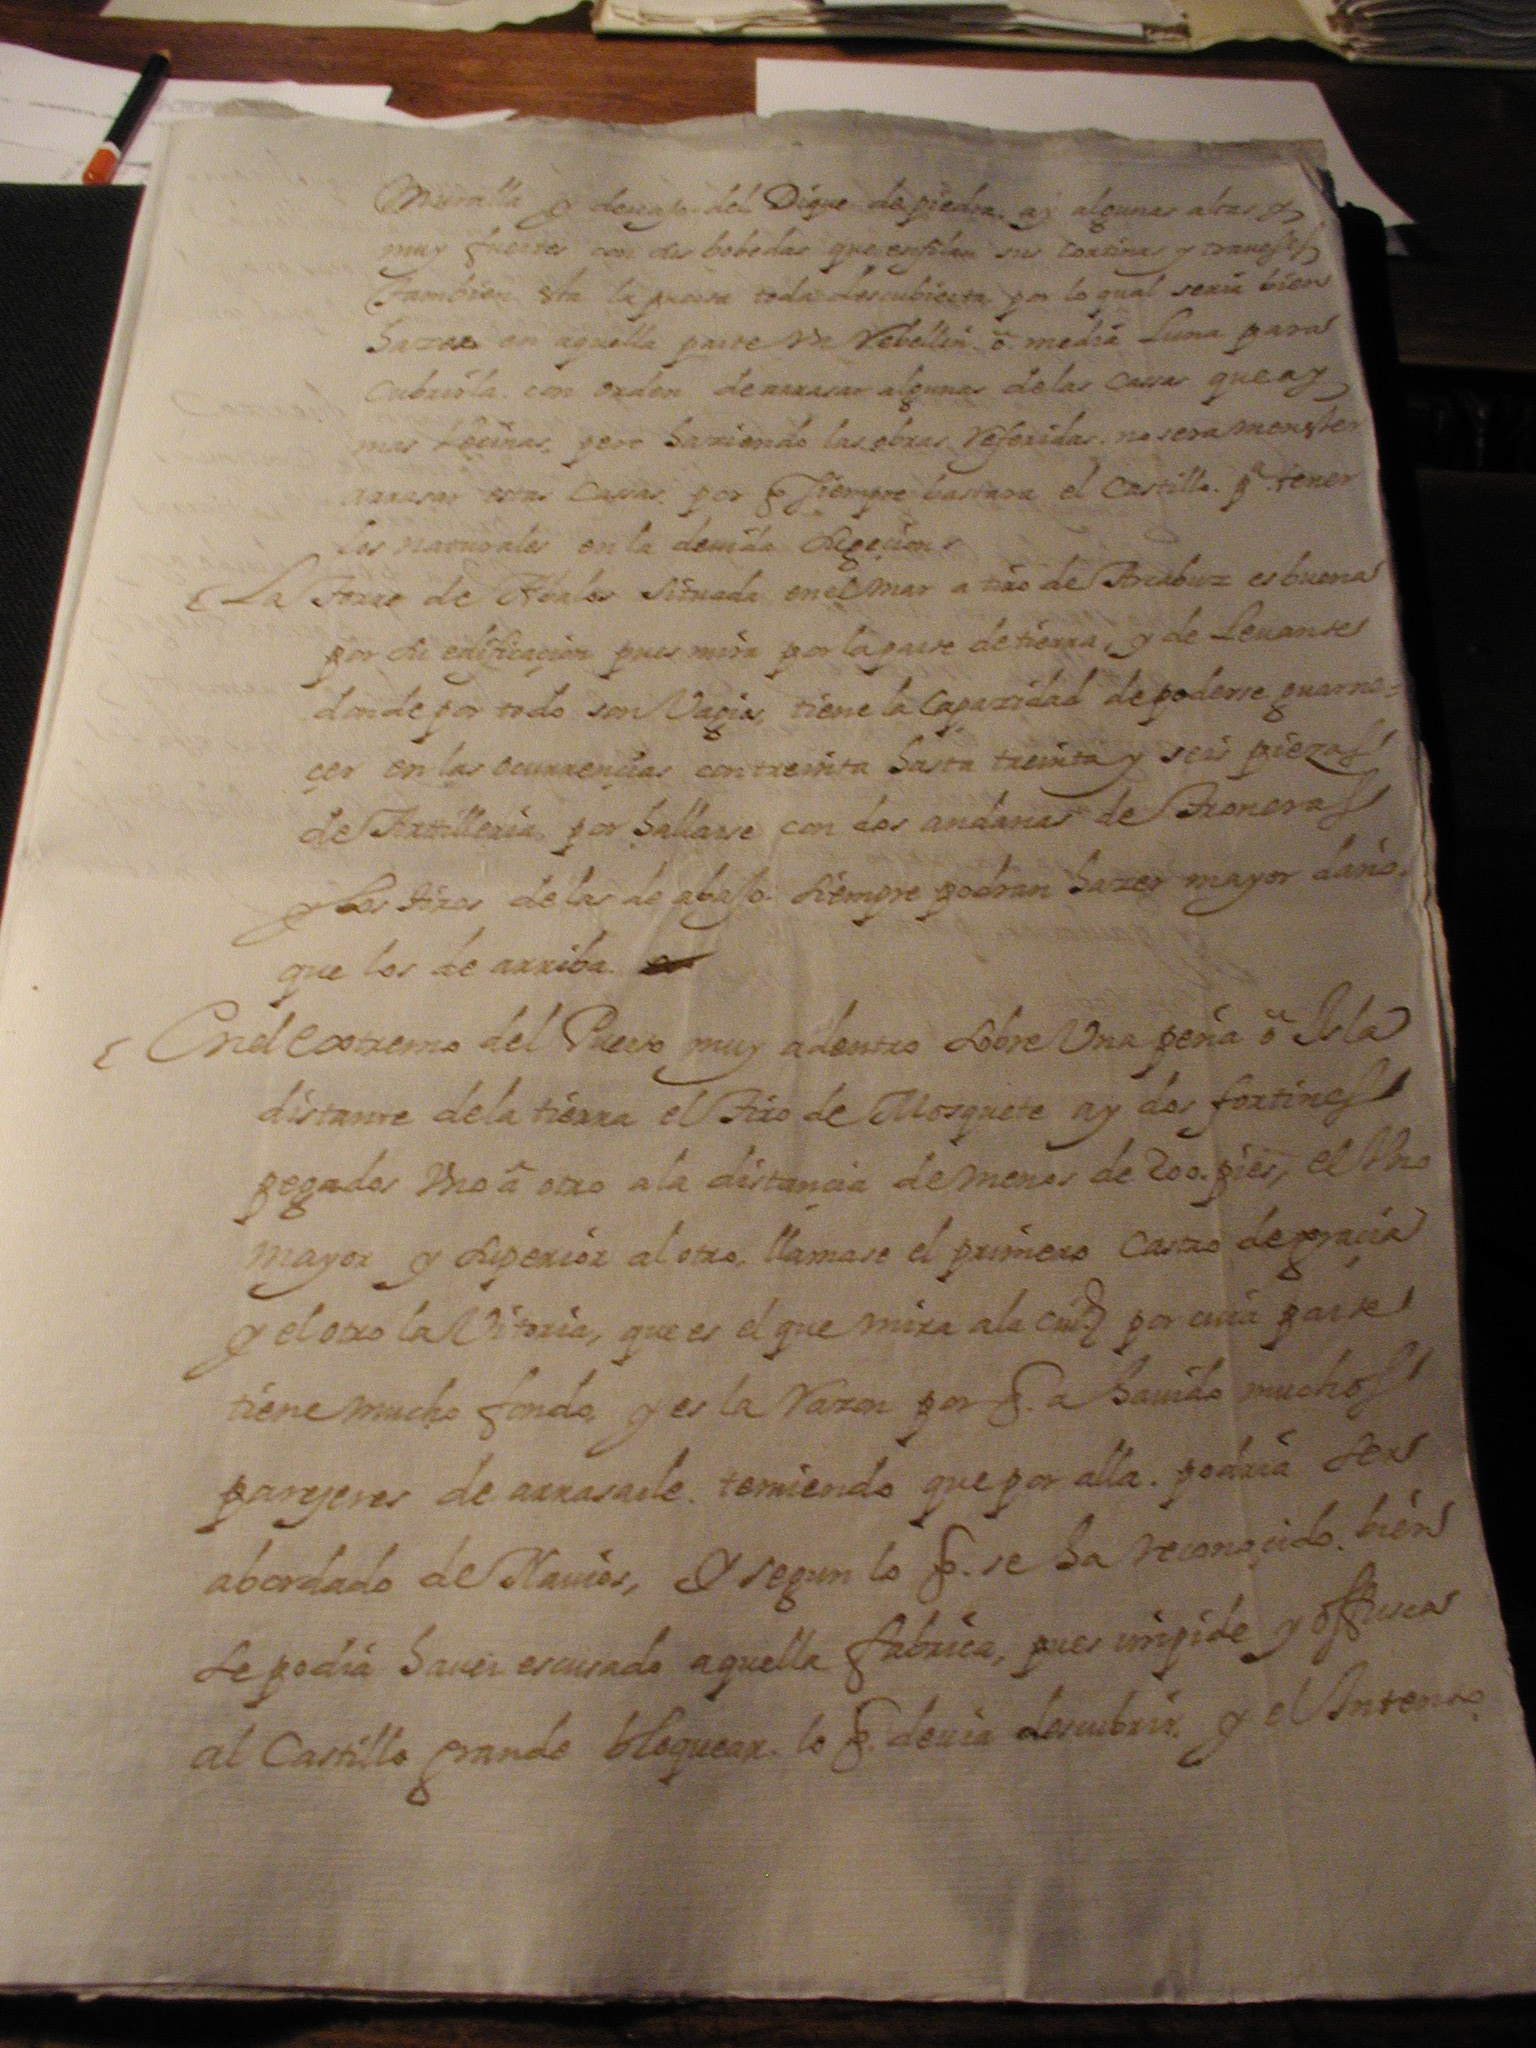 Muralla y devajo del Dique de piedra ay algunas altas y
muy fuertes con dos bobedas que enfilan sus cortinas y traueses
Tambien sta la puerta toda descubierta por lo qual seria bien
hazer en aquella parte Vn Rebellin ô media Luna para
cubrirla con orden de arrasar algunas de las Cassas que ay
mas Veçinas, pero haziendo las obras referidas no sera menester
arrasar estas Cassas por q siempre bastara el Castillo pᵃ tener
los naturales en la deuida sugeçion
La Torre de Abalos situada en el mar a tiro de Arcabuz es buena
por su edificaçion pues mira por la parte de tierra, y de Leuante
donde por todo son Vagios, tiene la Capazidad de poderse guarne=
çer en las ocurrençias con treinta hasta treinta y seis piezas
de Artilleria por hallarse con dos andanas de Troneras
y los tiros de las de abajo siempre podran hazer mayor daño
que los de arriba
En el extremo del Puerto muy adentro sobre Vna peña ô Isla
distante de la tierra el Tiro de Mosquete ay dos fortines
pegados Vno â otro a la distançia de menos de 200. pies, el Vno
mayor y superior al otro, llamase el primero Castro de graçia
y el otro la Vitoria, que es el que mira a la Ciud por cuia parte
tiene mucho fondo, y es la Razon por q. a hauido muchos
pareçeres de arrasarle. temiendo que por alla. podria ser
abordado de Nauios, Y segun lo q. se ha reconoçido. bien
se podia hauer escusado aquella fabrica, pues impide y offusca
al Castillo grande bloquear lo q. deuia descubrir. y el Intento